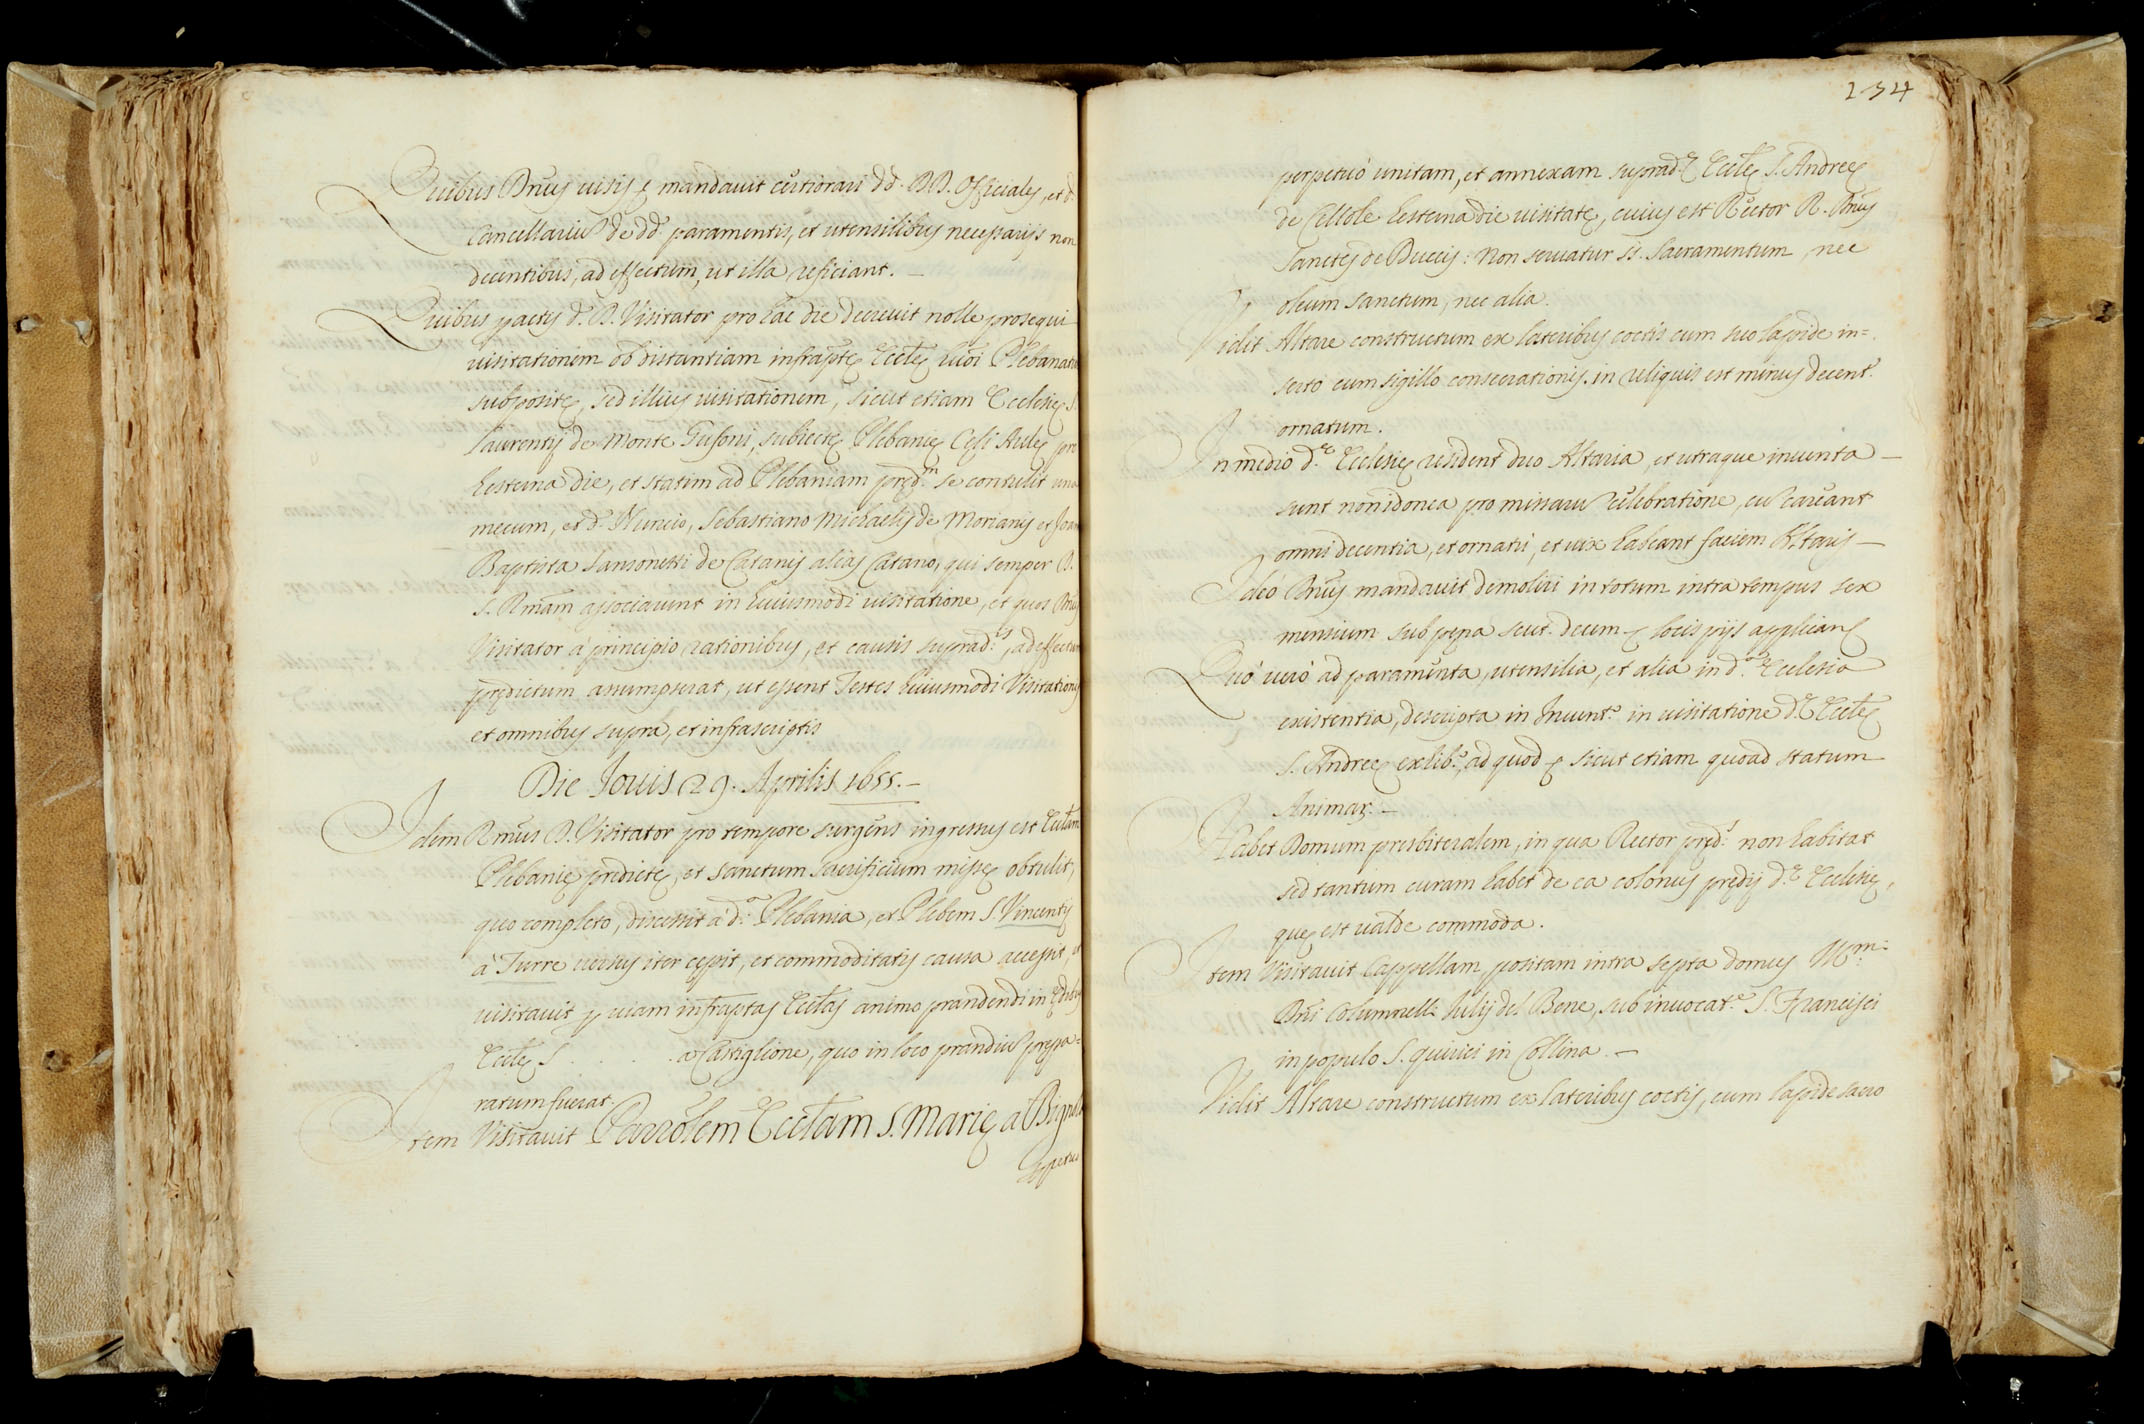 Quibus Dnus uisis ę mandauit certiorari dd. DD. Officiales, et d.
Cancellariu de dd. paramentis, et utensilibus necessarijs non
decentibus, ad effectum, ut illa reficiant. —
Quibus pactis d. D. Visitator pro hac die decreuit nolle prosequi
uisitationem ob distantiam infraptę Ecclę
subpositę, sed illius uisitationem, sicut etiam Ecclesię S.
Laurentij de Monte subiectę Plebanię
hesterna die, et statim ad Plebaniam pręd.m se contulit una
mecum, et d. Nuncio, Sebastiano Michaelis de Morianis et Joan
Baptista Sansonetti de Catanis alias Catano, qui semper D.
S. Rmam associauunt in huiusmodi uisitatione, et quos Dnus
Visitator à principio rationibus, et causis suprad.is, ad effectum
prędictum assumpserat, ut essent Testes huiusmodi Visitationis
et omnibus supra, et infrascriptis
Die Jouis 29. Aprilis 1655. —
Idem Rmus D. Visitator pro tempore surgens ingressus est Ecclam
Plebanię predictę, et sanctum sacrificium missę obtulit,
quo completo, discessit à d.a Plebania, et Plebem S. Vincentij
à Turre uersus iter cępit, et commoditatis causa accessit, et
uisitauit p uiam infraptas Ecclas animo prandendi in Ędibus
Ecclę S . . . . a Castiglione, quo in loco prandiu prępa=
ratum fuerat.
Item Visitauit Parrolem Ecclam S. Marię à
perpetuò
234
perpetuò unitam, et annexam suprad.ę Ecclę S. Andreę
de Cellole hesterna die uisitatę, cuius est Rector R. Dnus
Sanctes de Buccis: Non seruatur SS. Sacramentum, nec
oleum sanctum, nec alia.
Vidit Altare constructum ex lateribus coctis cum suo lapide in=
serto cum sigillo consecrationis. in reliquis est minus decent.r
ornatum.
In medio d.ę Ecclesię resident duo Altaria, et utraque inuenta —
sunt non idonea pro missaru celebratione, cu careant
omni decentia, et ornatu, et uix habeant faciem Altaris —
Ideò Dnus mandauit demoliri in totum intra tempus sex
mensium sub pęna scut. decem ę locis pijs applican
Quò uerò ad paramenta, utensilia, et alia in d.a Ecclesia
existentia, descripta in Inuent.o in uisitatione d.ę Ecclę
S. Andreę exhib.o, ad quod ę sicut etiam quoad statum
Animar. —
Habet Domum presbiteralem, in qua Rector pręd.s non habitat
sed tantum curam habet de ea colonus prędij d.ę Ecclesię,
quę est ualde commoda.
Item Visitauit Cappellam, positam intra septa domus Ill.mi
Dni Columnelli Iulij del Bene, sub inuocat.e S. Francisci
in populo S. Quirici in Collina. —
Vidit Altare constructum ex lateribus coctis, cum lapide sacro